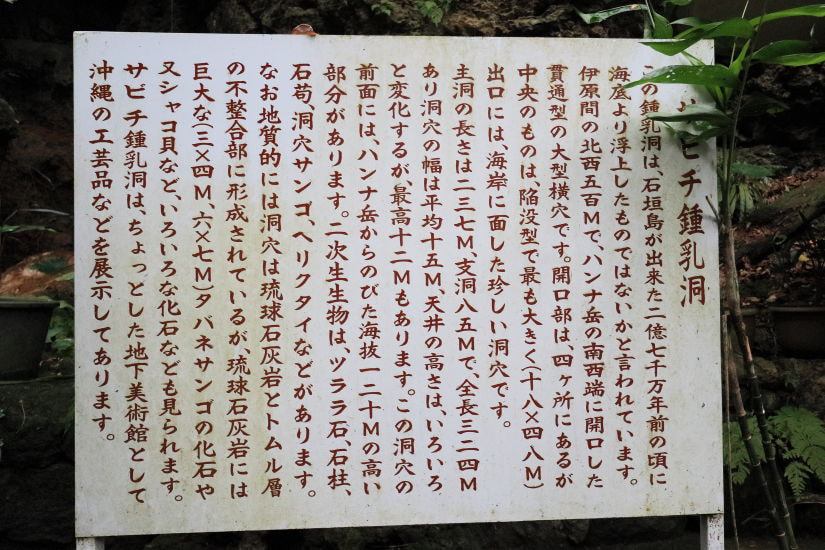 サビチ鍾乳洞
この鍾乳洞は、石垣島が出来た二億七千万年前の頃に
海底より浮上したものではないかと言われています。
伊原間の北西五百Mで、ハンナ岳の南西端に開口した
貫通型の大型横穴です。開口部は、四ヶ所にあるが
中央のものは、陥没型で最も大きく(十八×四八M)
出口には、海岸に面した珍しい洞穴です。
主洞の長さは二三七M、支洞八五Mで、全長三二四M
あり洞穴の幅は平均十五M、天井の高さは、いろいろ
と変化するが、最高十二Mもあります。この洞穴の
前面には、ハンナ岳からのびた海抜一二十Mの高い
部分があります。二次生生物は、ツララ石、石柱、
石筍、洞穴サンゴ、ヘリクタイなどがあります。
なお地質的には洞穴は琉球石灰岩とトムル層
の不整合部に形成されているが、琉球石灰岩には
巨大な(三×四M、六×七M)タバネサンゴの化石や
又シャコ貝など、いろいろな化石なども見られます。
サビチ鍾乳洞は、ちょっとした地下美術館として
沖縄の工芸品などを展示してあります。